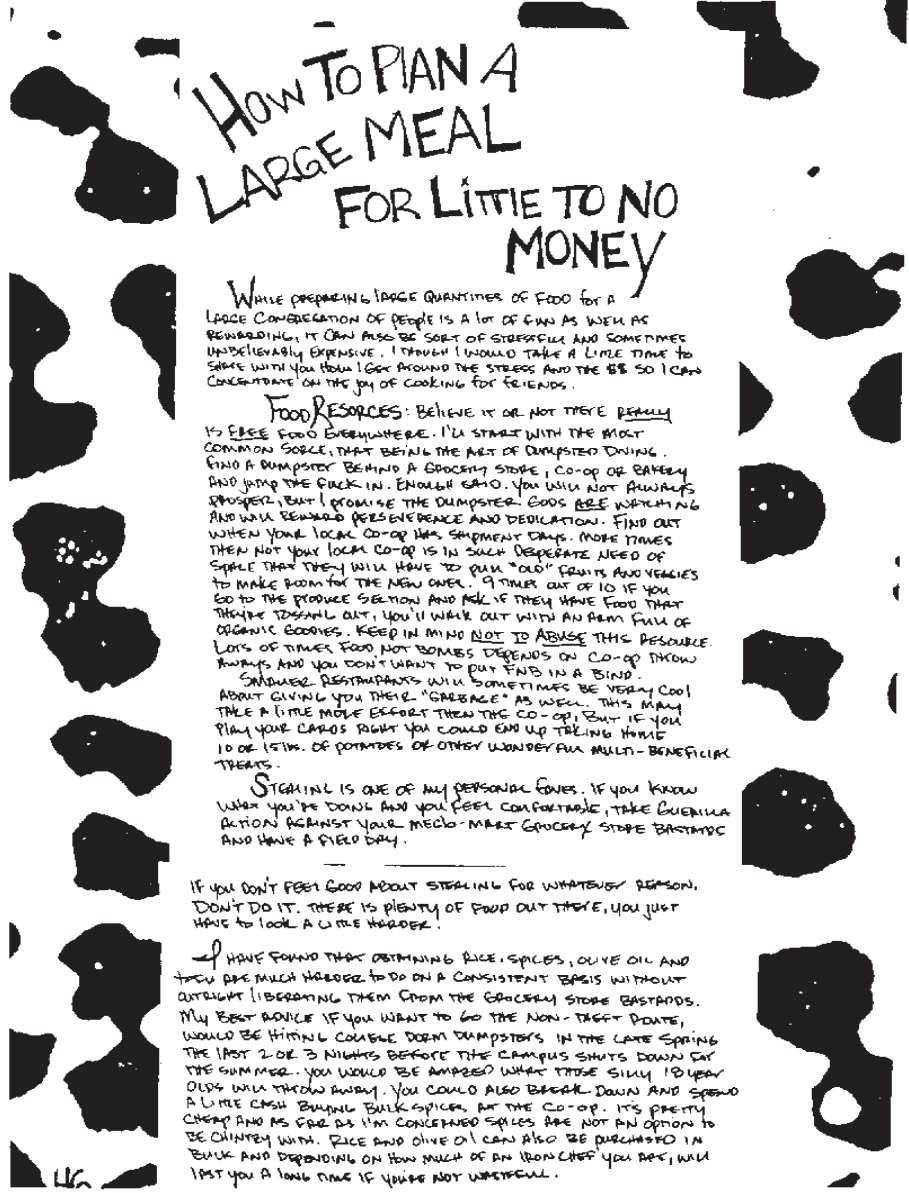 HOW TO PLAN A
LARGE MEAL
FOR LITTLE TO NO
MONEY
WHILE PREPARING LARGE QUANTITIES OF FOOD FOR A
LARGE CONGREGATION OF PEOPLE IS A LOT OF FUN AS WELL AS
REWARDING, IT CAN ALSO BE SORT OF STRESSFUL AND SOMETIMES
UNBELIEVABLY EXPENSIVE. I THOUGH I WOULD TAKE A LITTLE TIME TO
SHARE WITH YOU HOW I GET AROUND THE STRESS AND THE $$ SO I CAN
CONCENTRATE ON THE JOY OF COOKING FOR FRIENDS.
FOOD RESORCES: BELIEVE IT OR NOT THERE REALLY
IS FREE FOOD EVERYWHERE. I'LL START WITH THE MOST
COMMON SORCE, THAT BEING THE ART OF DUMPSTED DIVING.
FIND A DUMPSTER BEHIND A GROCERY STORE, CO-OP OR BAKERY
AND JUMP THE FUCK IN. ENOUGH SAID. YOU WILL NOT ALWAYS
PROSPER, BUT I PROMISE THE DUMPSTER GODS ARE WATCHING
AND WILL REWARD PERSEVERENCE AND DEDICATION. FIND OUT
WHEN YOUR LOCAL CO-OP HAS SHIPMENT DAYS. MORE TIMES
THEN NOT YOUR LOCAL CO-OP IS IN SUCH DESPERATE NEED OF
SPACE THAT THEY WILL HAVE TO PULL "OLD" FRUITS AND VEGGIES
TO MAKE ROOM FOR THE NEW ONES. 9 TIMES OUT OF 10 IF YOU
GO TO THE PRODUCE SECTION AND ASK IF THEY HAVE FOOD THAT
THEY'RE TOSSING OUT, YOU'LL WALK OUT WITH AN ARM FULL OF
ORGANIC GOODIES. KEEP IN MIND NOT TO ABUSE THIS RESOURCE.
LOTS OF TIMES FOOD NOT BOMBS DEPENDS ON CO-OP THROW
AWAYS AND YOU DON'T WANT TO PUT FNB IN A BIND.
SMALLER RESTAURANTS WILL SOMETIMES BE VERY COOL
ABOUT GIVING YOU THEIR "GARBAGE" AS WELL. THIS MAY
TAKE A LITTLE MORE EFFORT THEN THE CO-OP, BUT IF YOU
PLAY YOUR CARDS RIGHT YOU COULD END UP TAKING HOME
10 OR 15 LBS. OF POTATOES OR OTHER WONDERFUL MULTI-BENEFICIAL
TREATS.
STEALING IS ONE OF MY PERSONAL FAVES. IF YOU KNOW
WHAT YOU'RE DOING AND YOU FEEL COMFORTABLE, TAKE GUERILLA
ACTION AGAINST YOUR MEGLO-MART GROCERY STORE BASTARDS
AND HAVE A FIELD DAY.
IF YOU DON'T FEEL GOOD ABOUT STEALING FOR WHATEVER REASON,
DON'T DO IT. THERE IS PLENTY OF FOOD OUT THERE, YOU JUST
HAVE TO LOOK A LITTLE HARDER.
I HAVE FOUND THAT OBTAINING RICE, SPICES, OLIVE OIL AND
TOFU ARE MUCH HARDER TO DO ON A CONSISTENT BASIS WITHOUT
OUTRIGHT LIBERATING THEM FROM THE GROCERY STORE BASTARDS.
MY BEST ADVICE IF YOU WANT TO GO THE NON-THEFT ROUTE,
WOULD BE HITTING COLLEGE DORM DUMPSTERS IN THE LATE SPRING
THE LAST 2 OR 3 NIGHTS BEFORE THE CAMPUS SHUTS DOWN FOR
THE SUMMER. YOU WOULD BE AMAZED WHAT THOSE SILLY 18 YEAR
OLDS WILL THROW AWAY. YOU COULD ALSO BREAK DOWN AND SPEND
A LITTLE CASH BUYING BULK SPICES AT THE CO-OP. IT'S PRETTY
CHEAP AND AS FAR AS I'M CONCERNED SPICES ARE NOT AN OPTION TO
BE CHINTZY WITH. RICE AND OLIVE OIL CAN ALSO BE PURCHASED IN
BULK AND DEPENDING ON HOW MUCH OF AN IRON CHEF YOU ARE, WILL
LAST YOU A LONG TIME IF YOU'RE NOT WASTEFUL.